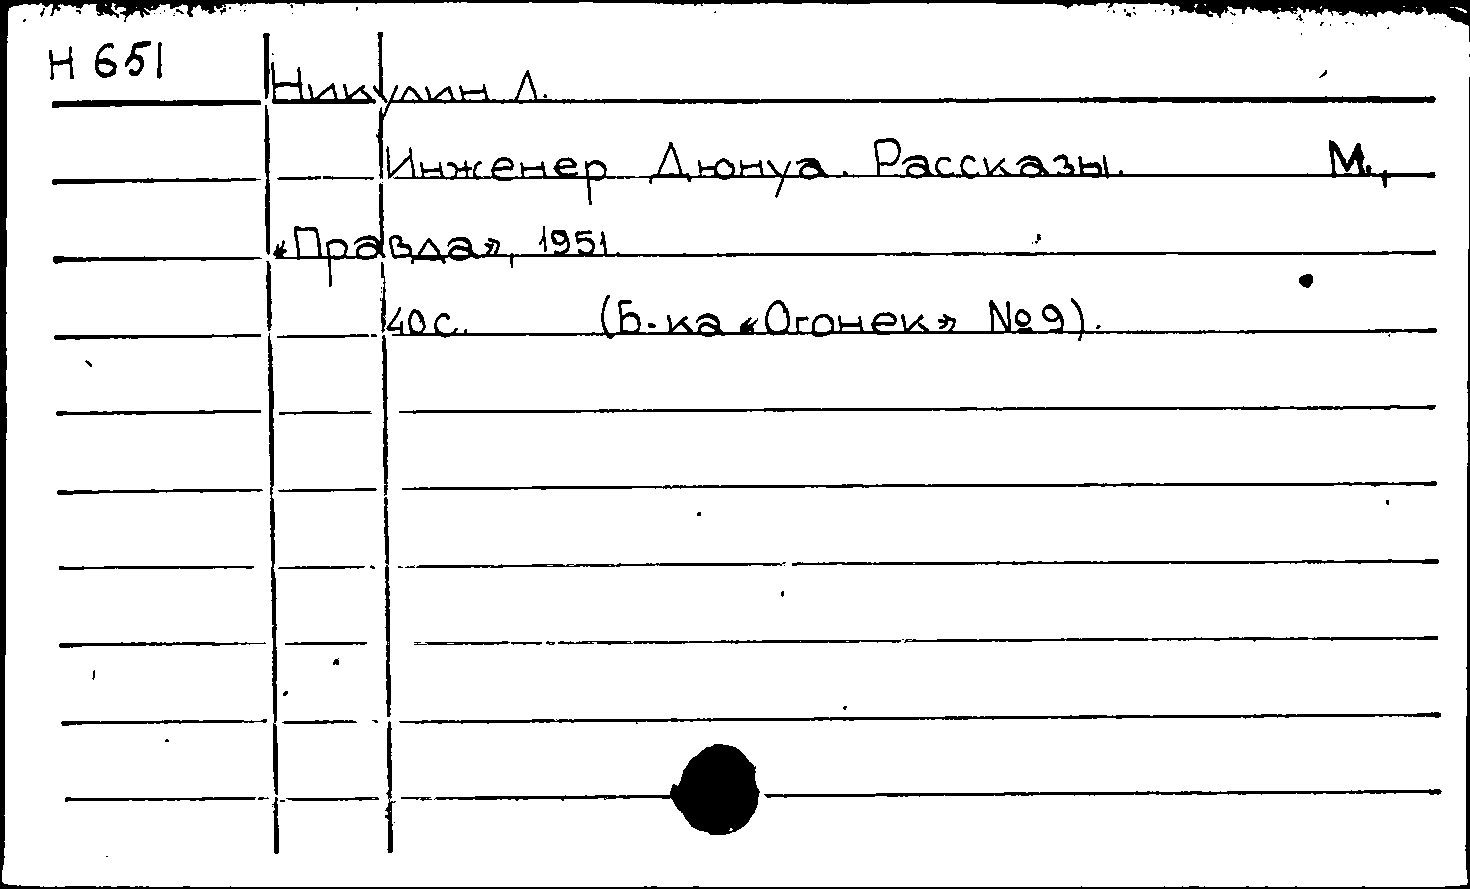 Н 651
Никулин Л.
Инженер Дюнуа. Рассказы. М.,
«Правда», 1951.
40 с. (Б-ка «Огонек» № 9).